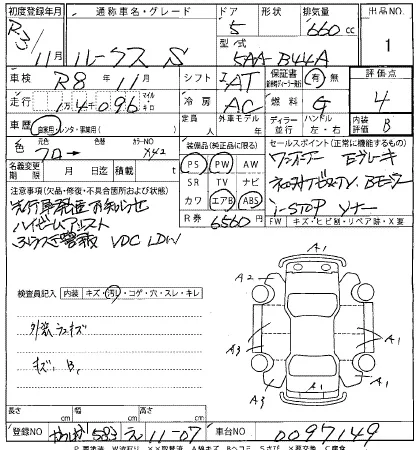 初度登録年月 通称車名・グレード ドア 形状 排気量 出品NO
R3/11月 ルークス S 5 660cc 1
型式 5AA-B44A
車検 R8年11月 シフト IAT 保証書 有・無 評価点
走行 1万4096 マイル キロ 冷房 AC 燃料 G 4
車歴 自家用・レンタ・事業用( ) 定員 人 外車モデル ディーラー 並行 ハンドル 左・右 内装評価 B
色 クロ→ 色替 カラーNO X42
装備品(純正品に限る) セールスポイント(正常に機能するもの)
PS PW AW ワンオーナー Eブレーキ
名義変更期限 月 日迄 積載量 t SR TV ナビ
注意事項(欠品・修復・不具合箇所および状態) カワ エアB ABS i-STOP ソナー
先行車発進お知らせ R券 6560円
ハイビームアシスト FW キズ・ヒビ割・リペア跡・X要
ふらつき警報 VDC LDW
検査員記入 内装 キズ・汚れ・コゲ・穴・スレ・キレ
外装 キズ
A1
A2
A1
A3
A1
A3
A1
長さ cm 幅 cm 高さ cm
登録NO 583 え 11-07 車台NO 0097149